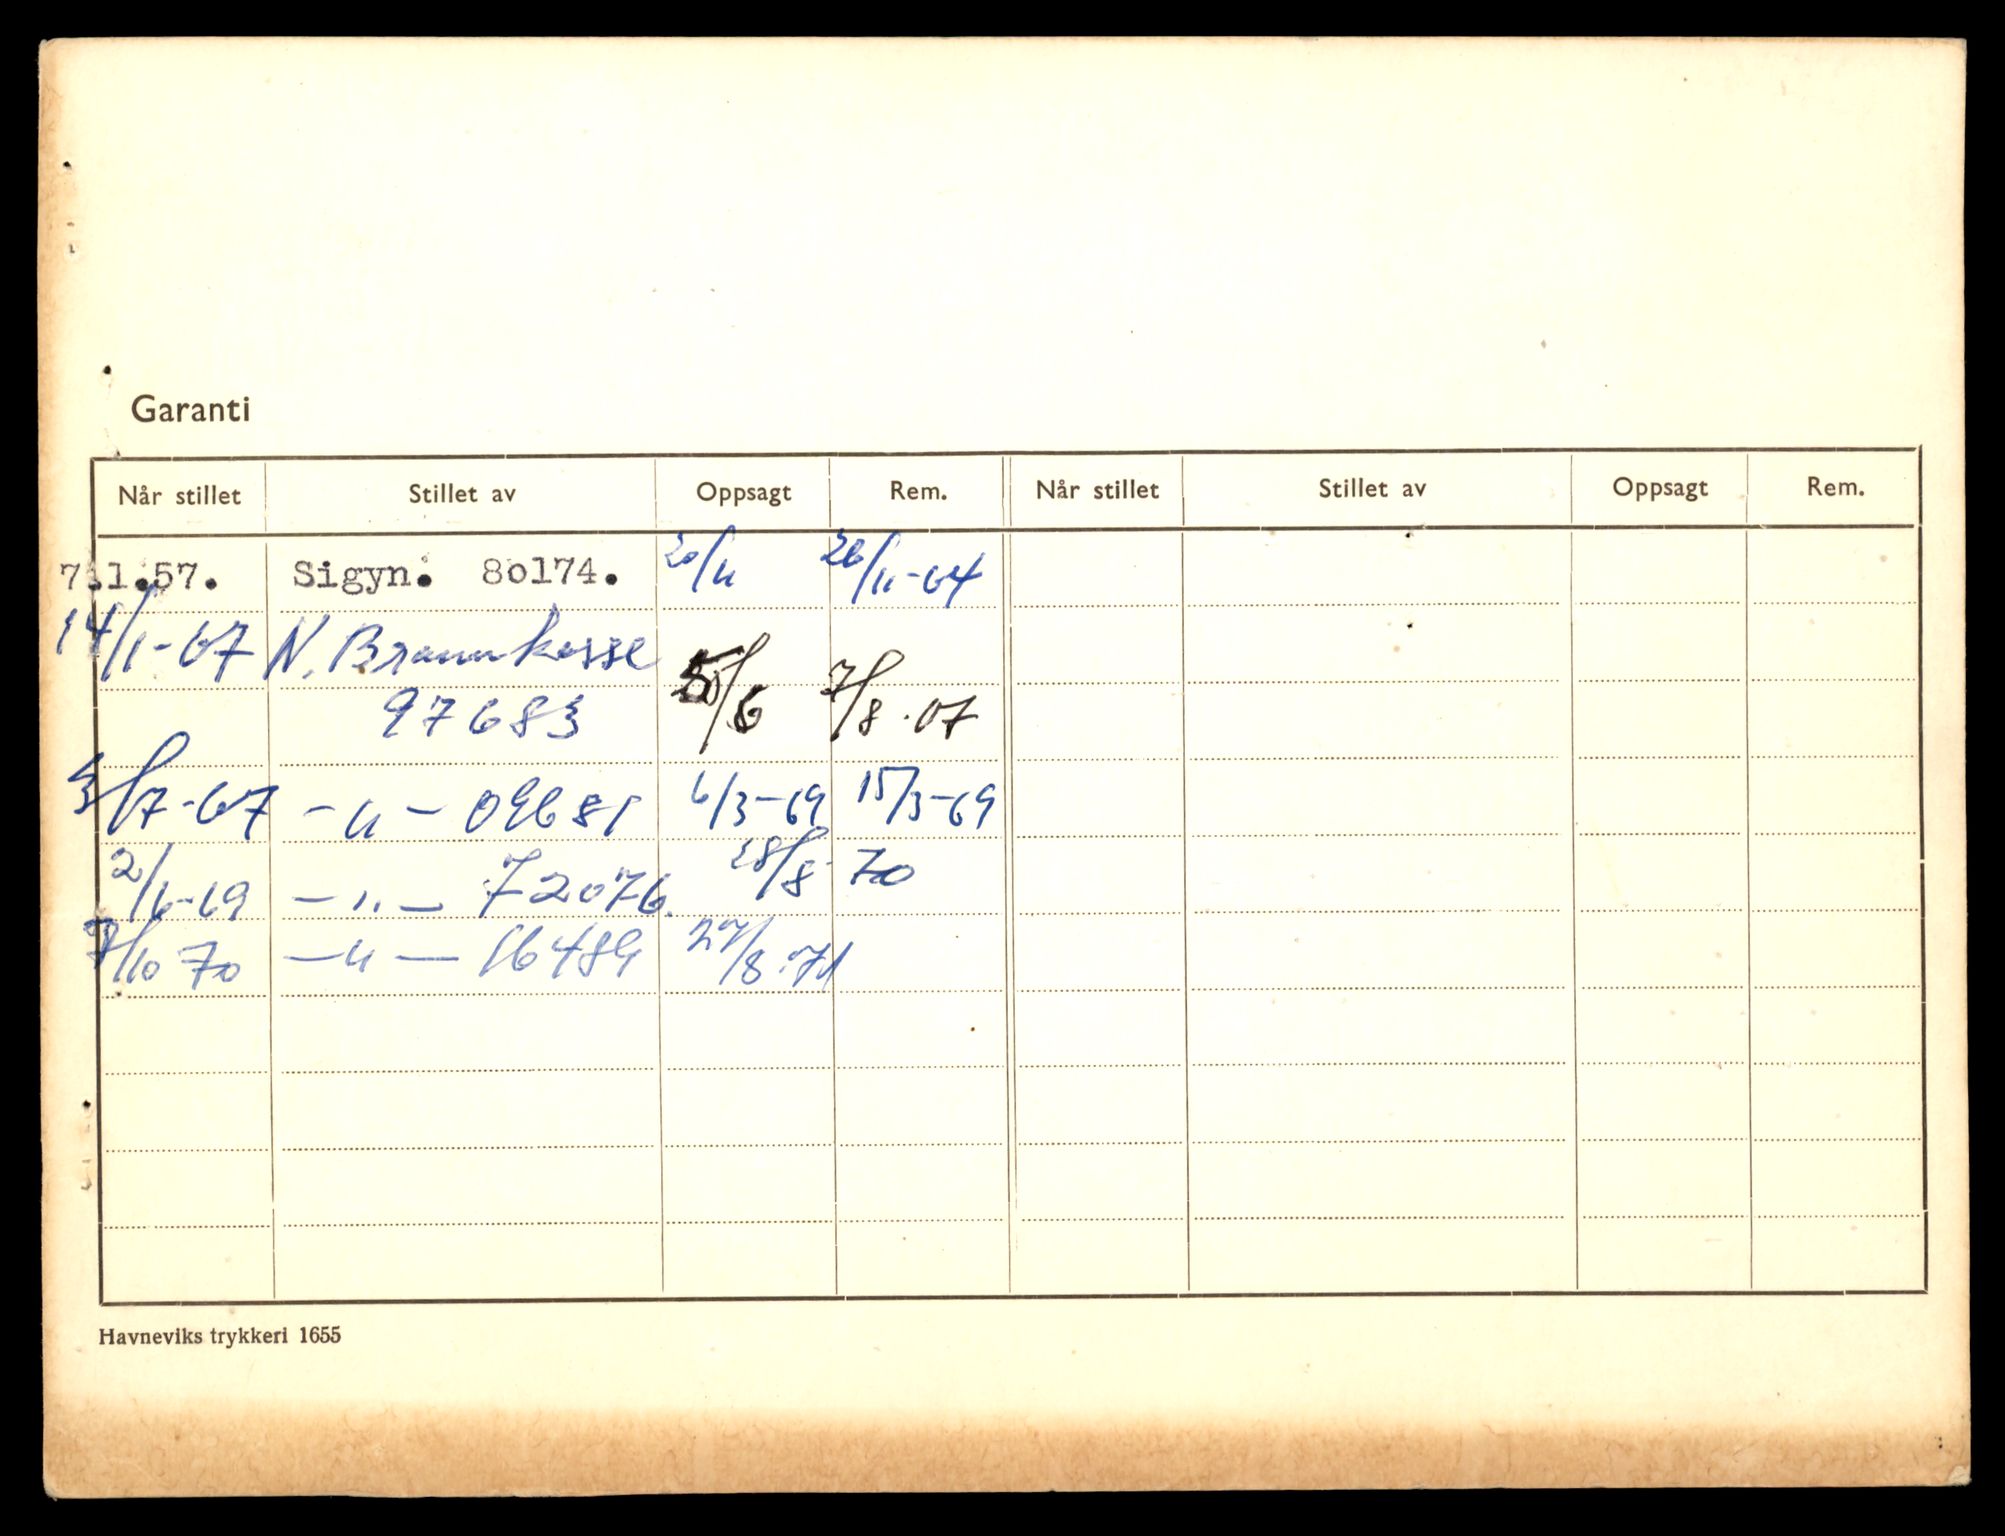 Garanti
Når stillet Stillet av Oppsagt Rem. Når stillet Stillet av Oppsagt Rem.
7.1.57. Sigyn. 80174. 20/11 26/11-64
14/1-67 N. Brannkasse
97683 30/6 7/8.67
3/7-67 -"- 09681 6/3-69 15/3-69
2/6-69 -"- 72076. 28/8- 70
7/10 70 -"- 16489 27/8.71
Havneviks trykkeri 1655